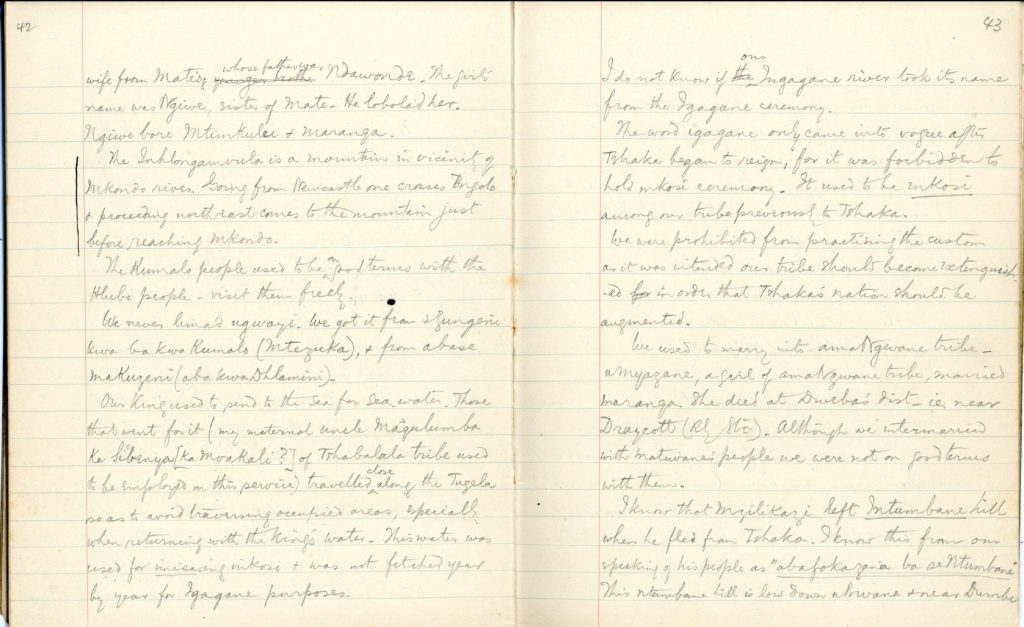 42
wife from Mate, whose father was Ndawonde. The girl's
name was Ngiwe, sister of Mate. He lobolad her.
Ngiwe bore Mtimkulu & Maranga.
The Inhlongamvula is a mountain in vicinity of
Mkondo river. Going from Newcastle one crosses
& proceeding northeast comes to the mountain just
before reaching Mkondo.
The Kumalo people used to be on good terms with the
Hlubi people - visit them freely.
We never limad ugwayi. We got it from
kwa ba kwa Kumalo (Mtezuka), & from abase
Makuzeni (aba kwa Dhlamini).
Our King used to send to the sea for sea water. Those
that went for it (my maternal uncle Magulumba
ka Sibenya [ka Mvakali?] of Tshabalala tribe used
to be employed on this service) travelled close along the Tugela
so as to avoid traversing occupied areas, especially
when returning with the King's water. This water was
used for inkosi & was not fetched year
by year for Igagane purposes.
43
I do not know if the our Ingagane river took its name
from the Igagane ceremony.
The word igagane only came into vogue after
Tshaka began to reign, for it was forbidden to
hold mkosi ceremony. It used to be mkosi
among our tribe previously to Tshaka.
We were prohibited from practising the custom
as it was intended our tribe should become extinguish-
-ed for in order that Tshaka's nation should be
augmented.
We used to marry into amaNgwane tribe -
uMyazane, a girl of amaNgwane tribe, married
Maranga. She died at Dweba's dist - i.e. near
Draycott (Rl. Stn). Although we intermarried
with Matuwane's people we were not on good terms
with them.
I know that Mzilikazi left Intumbane hill
when he fled from Tshaka. I know this from our
speaking of his people as "abafokazana ba se Ntumbane"
This Ntumbane hill is low down & near Dumbe